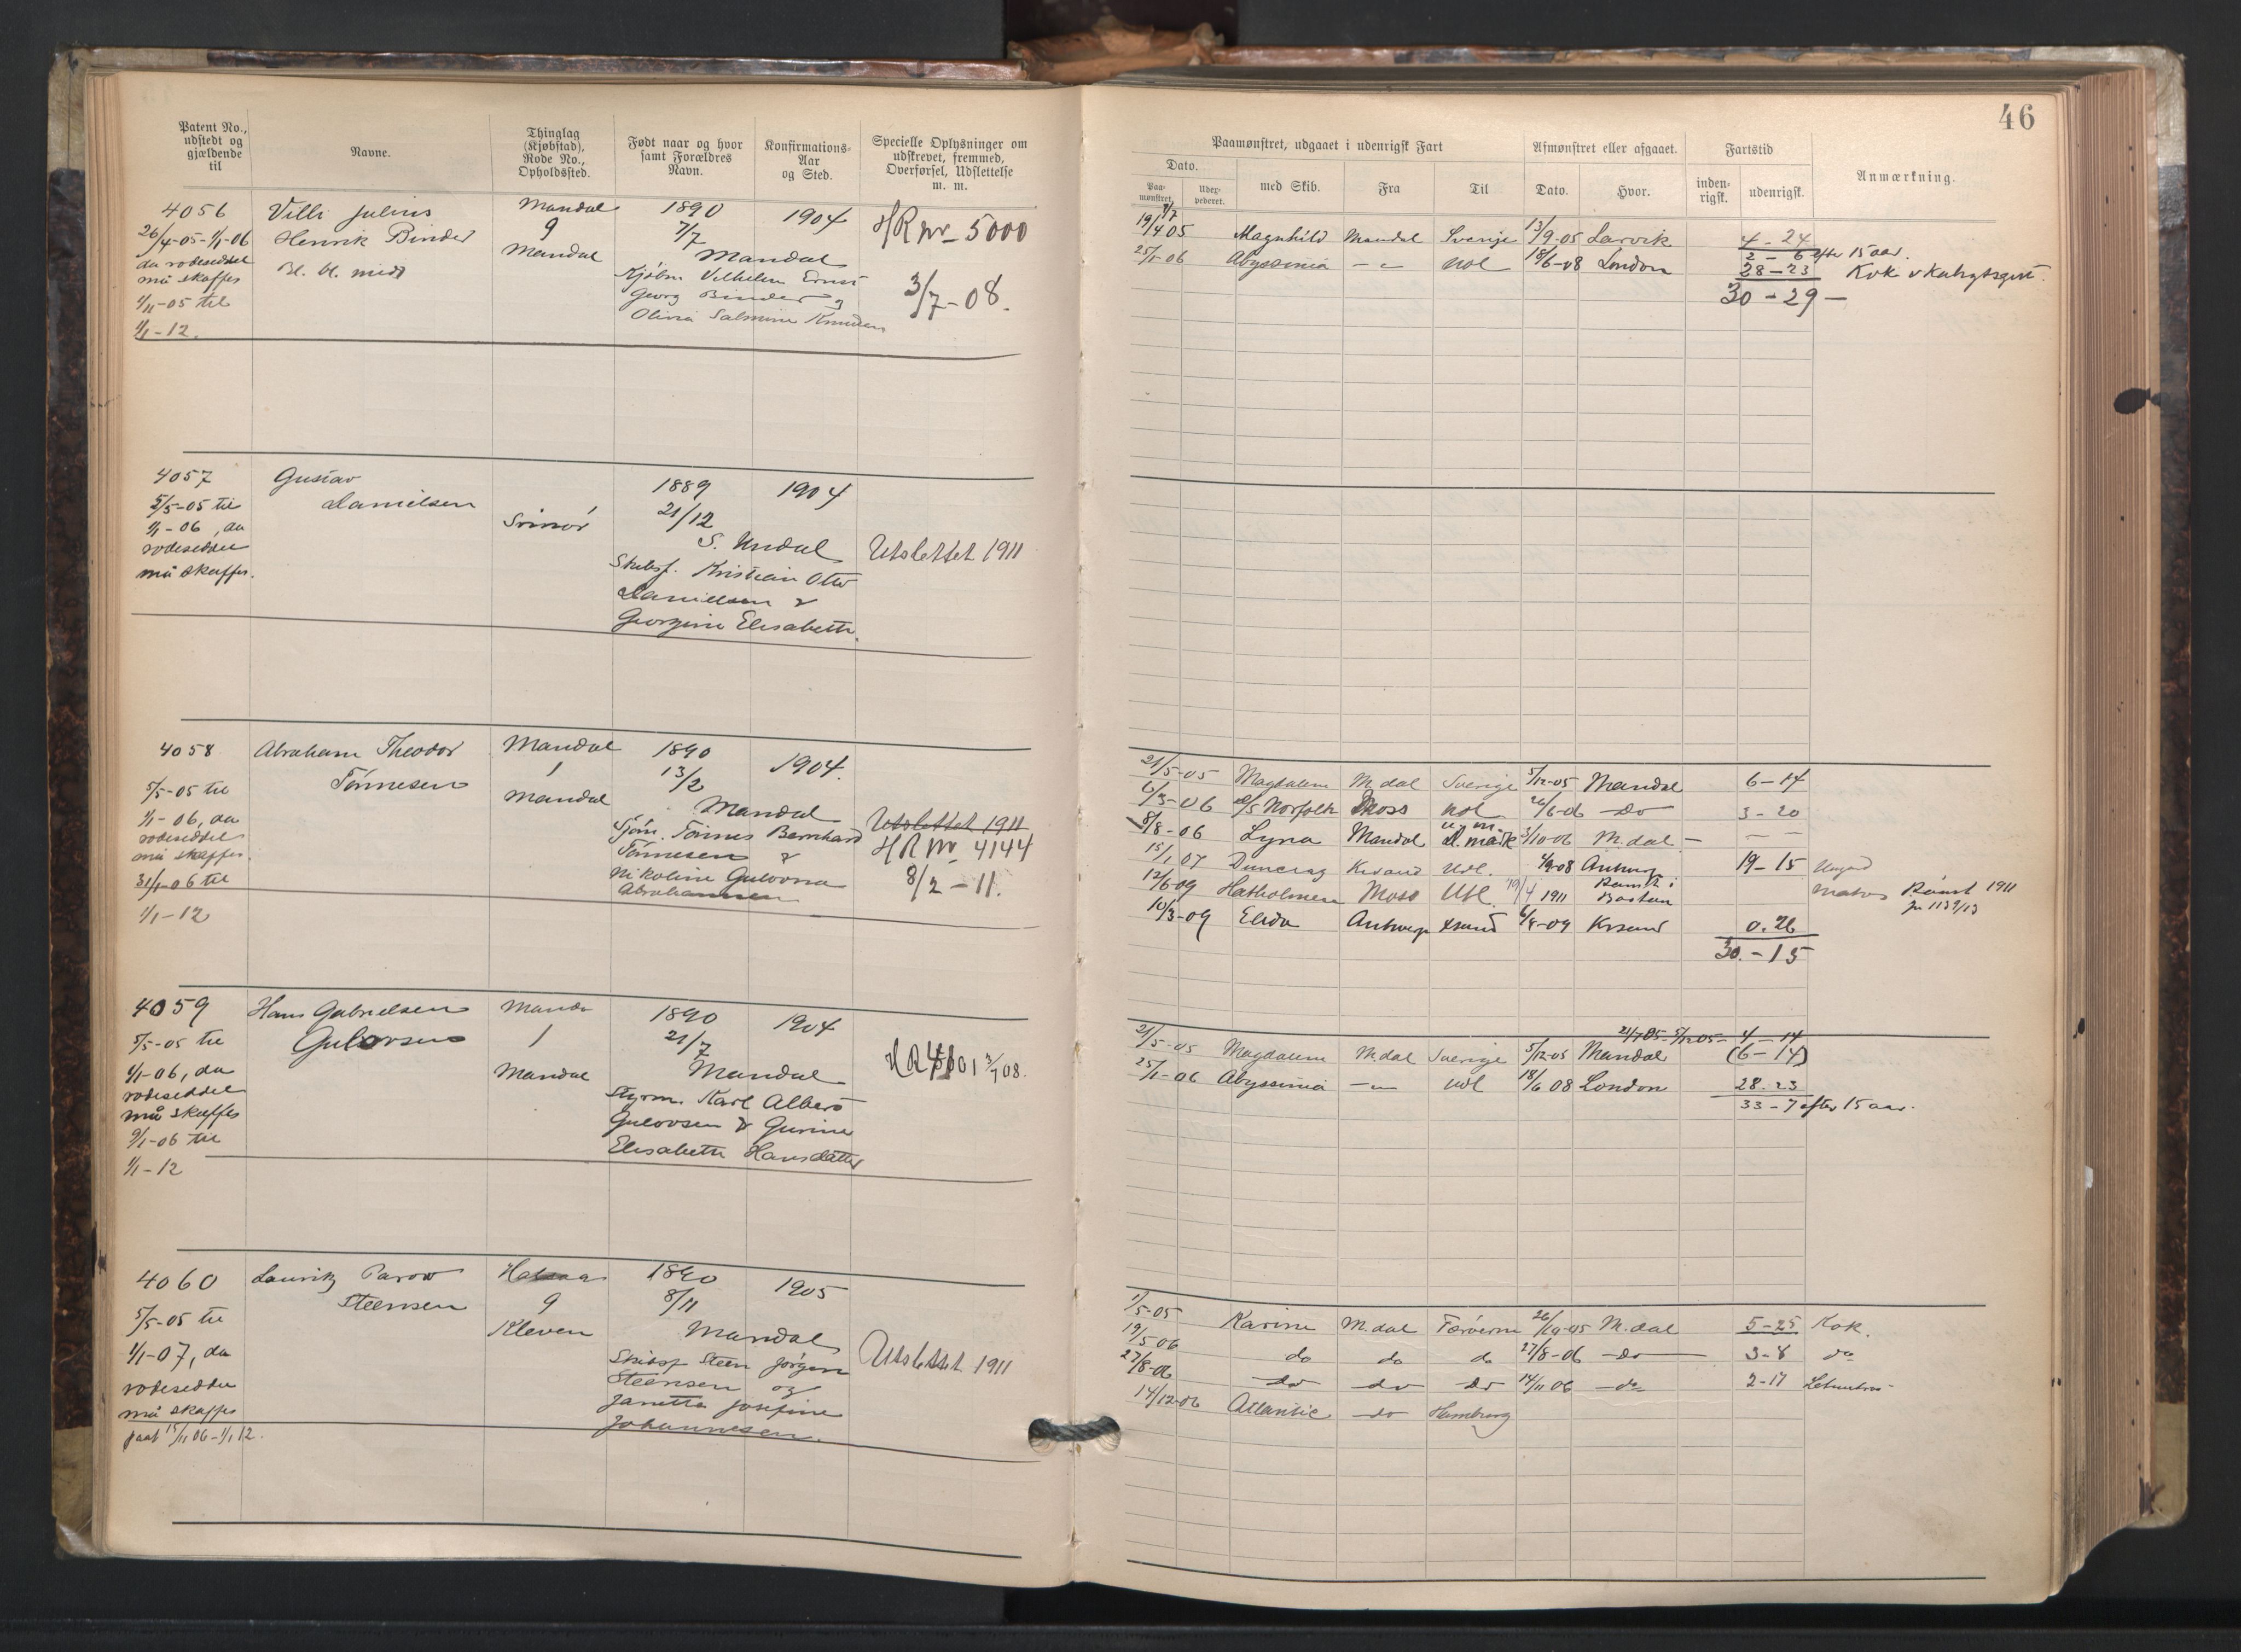 46
Patent No., udstedt og gjældende til
Navne.
Thinglag (Kjøbstad), Rode No., Opholdssted.
Født naar og hvor samt Forældres Navn.
Konfirmations-Aar og Sted.
Specielle Oplysninger om udskrevet, fremmed, Overførsel, Udslettelse m. m.
Paamønstret, udgaaet i udenrigsk Fart
Dato.
Paa-mønstret.
Uder-pederet.
med Skib.
Fra
Til
Afmønstret eller afgaaet.
Dato.
Hvor.
Fartstid
inden-rigsk.
udenrigsk.
Anmærkning.
4056
26/4-05-1/1-06
da rodeseddel
må skaffes
1/11-05 til
1/1-12.
Villi Julius
Henrik Binder
Bl. bl. midd
Mandal
9
Mandal
1890
7/7
Mandal
Kjøbm Vilhelm Ernst
Georg Binder og
Olivia Salmine Knudsen
1904
HR nr 5000
3/7-08.
19/4 05 7/7 Magnhild Mandal Sverige 13/9-05 Larvik 4-24
2-6 efter 15 aar.
25/1-06 Abyssinia -"- Udl 18/6-08 London 28-23 Kok
30-29-
4057
5/5-05 til
1/1-06, da
rodeseddel
må skaffes.
Gustav
Danielsen
Svinør
1889
21/12
S. Undal
Skibsf. Kristian Otto
Danielsen &
Georgine Elisabeth.
1904
Utslettet 1911
4058
5/5-05 til
1/1-06, da
rodeseddel
må skaffes.
31/1-06 til
1/1-12
Abraham Theodor
Tönnesen
Mandal
1
Mandal
1890
13/2
Mandal
Sjöm. Tönnes Bernhard
Tönnesen &
Nikoline Gulovna
Abrahamsen
1904.
Utslettet 1911
HR Nr 4144
8/2-11.
21/5-05 Magdalene M.dal Sverige 5/12-05 Mandal 6-14
6/3-06 D/S Norfolk Moss Udl 26/6-06 Do 3-20
8/8-06 Lyna Mandal D.mark 3/10-06 M.dal - - -
15/1 07 Duncrag Krsand Udl. 4/9-08 Antwerp 19-15 Ungd
12/6-09 Hatholmen Moss Utl. 19/4 1911 Rømt i Boston Matros Rømt 1911
10/3-09 Elida Antwerp Krsand 6/4-09 Krsand 0.26
30.-15
4059
5/5-05 til
1/1-06, da
rodeseddel
må skaffes
9/1-06 til
1/1-12
Hans Gabrielsen
Gulovsen
Mandal
1
Mandal
1890
21/7
Mandal
Styrm. Karl Albert
Gulovsen & Gurine
Elisabeth Hansdatter
1904
3/7 08.
21/7 05-5/12 05- 4-14
21/5-05 Magdalene M.dal Sverige 5/12-05 Mandal (6-14)
25/1-06 Abyssinia -"- Udl 18/6 08 London 28.23
33-7 efter 15 aar.
4060
5/5-05 til
1/1-07, da
rodeseddel
må skaffes
paat 15/11 06-1/1 12.
Lauritz Parow
Steensen
Halsaa
9
Kleven
1890
8/11
Mandal
Skibsf Steen Jörgen
Steensen og
Janetta Josefine
Johannesen.
1905
Utslettet 1911
1/5-05 Karine M.dal Færøerne 26/10-05 M.dal 5-25 Kok.
19/5-06 do do do 27/8-06 Do 3-8 do
27/8-06 do do do 14/11 06 do 2-17 Letmatros
14/12-06 Atlantic do Hamburg